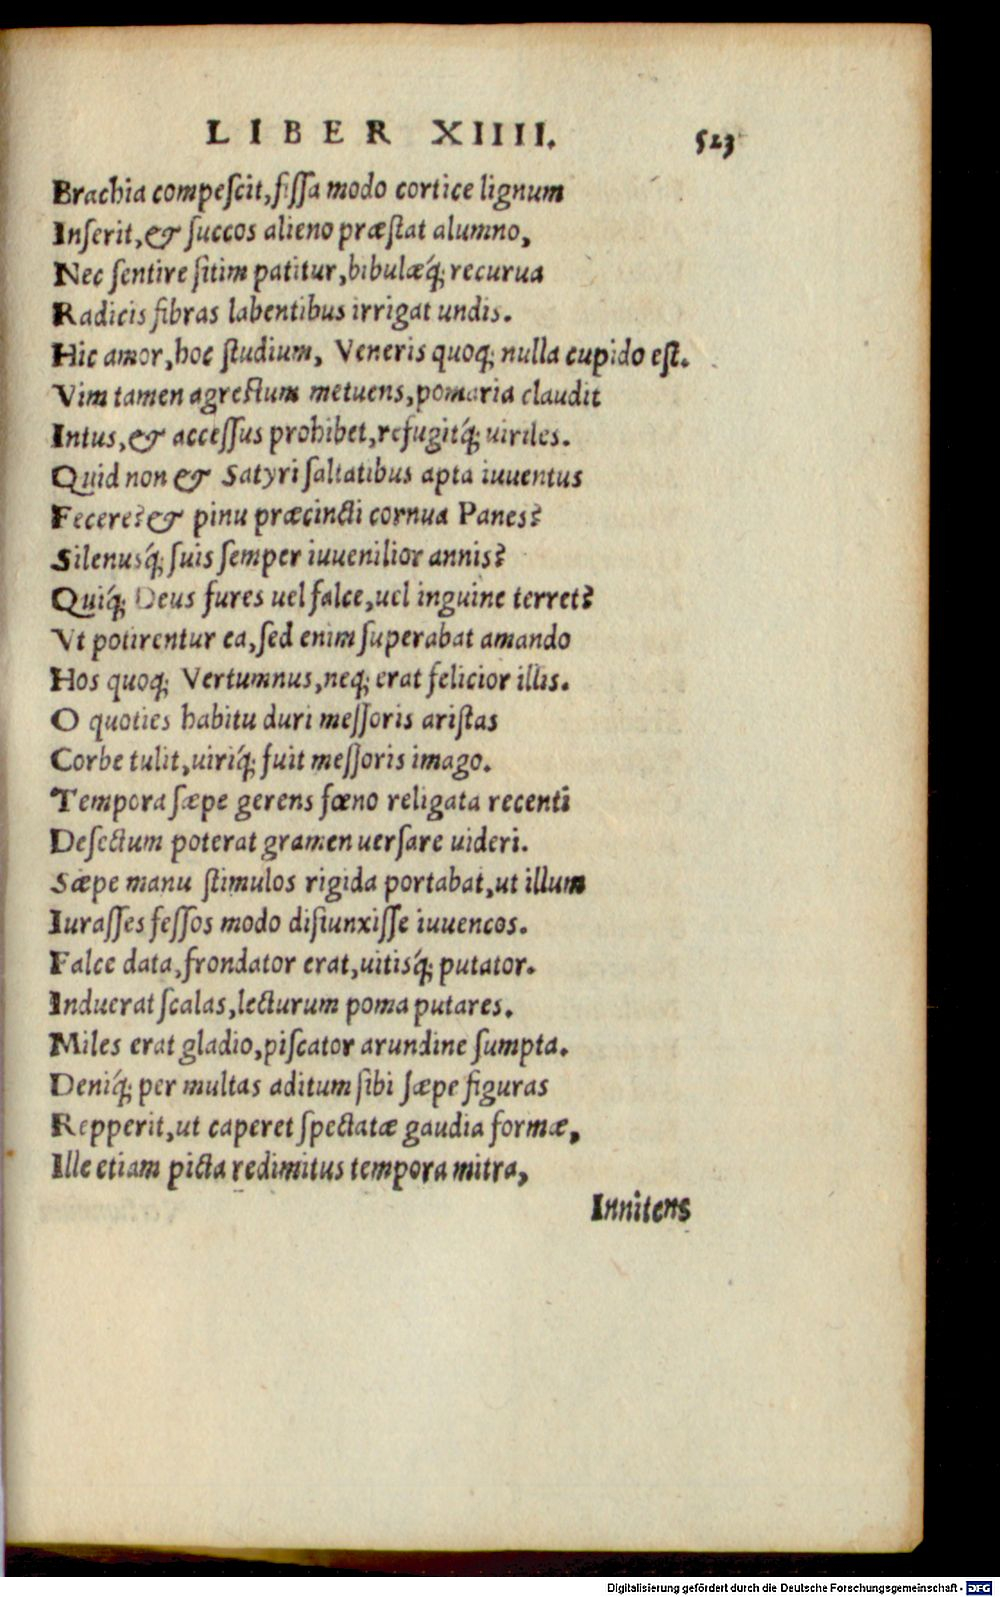 LIBER XIIII. 523
Brachia compeſcit, fiſſa modo cortice lignum
Inſerit, & ſuccos alieno præſtat alumno,
Nec ſentire ſitim patitur, bibulæq́; recurua
Radicis fibras labentibus irrigat undis.
Hic amor, hoc ſtudium, Veneris quoq; nulla cupido eſt.
Vim tamen agreſtum metuens, pomaria claudit
Intus, & acceſſus prohibet, refugitq́; uiriles.
Quid non & Satyri ſaltatibus apta iuuentus
Fecere? & pinu præcincti cornua Panes?
Silenusq́; ſuis ſemper iuuenilior annis?
Quiq́; Deus fures uel falce, uel inguine terret?
Vt potirentur ea, ſed enim ſuperabat amando
Hos quoq; Vertumnus, neq; erat felicior illis.
O quoties habitu duri meſſoris ariſtas
Corbe tulit, uiriq́; fuit meſſoris imago.
Tempora ſæpe gerens fœno religata recenti
Deſectum poterat gramen uerſare uideri.
Sæpe manu ſtimulos rigida portabat, ut illum
Iuraſſes feſſos modo diſiunxiſſe iuuencos.
Falce data, frondator erat, uitisq́; putator.
Induerat ſcalas, lecturum poma putares.
Miles erat gladio, piſcator arundine ſumpta.
Deniq́; per multas aditum ſibi ſæpe figuras
Repperit, ut caperet ſpectatæ gaudia formæ,
Ille etiam picta redimitus tempora mitra,
Innitens
Digitalisierung gefördert durch die Deutsche Forschungsgemeinschaft - DFG